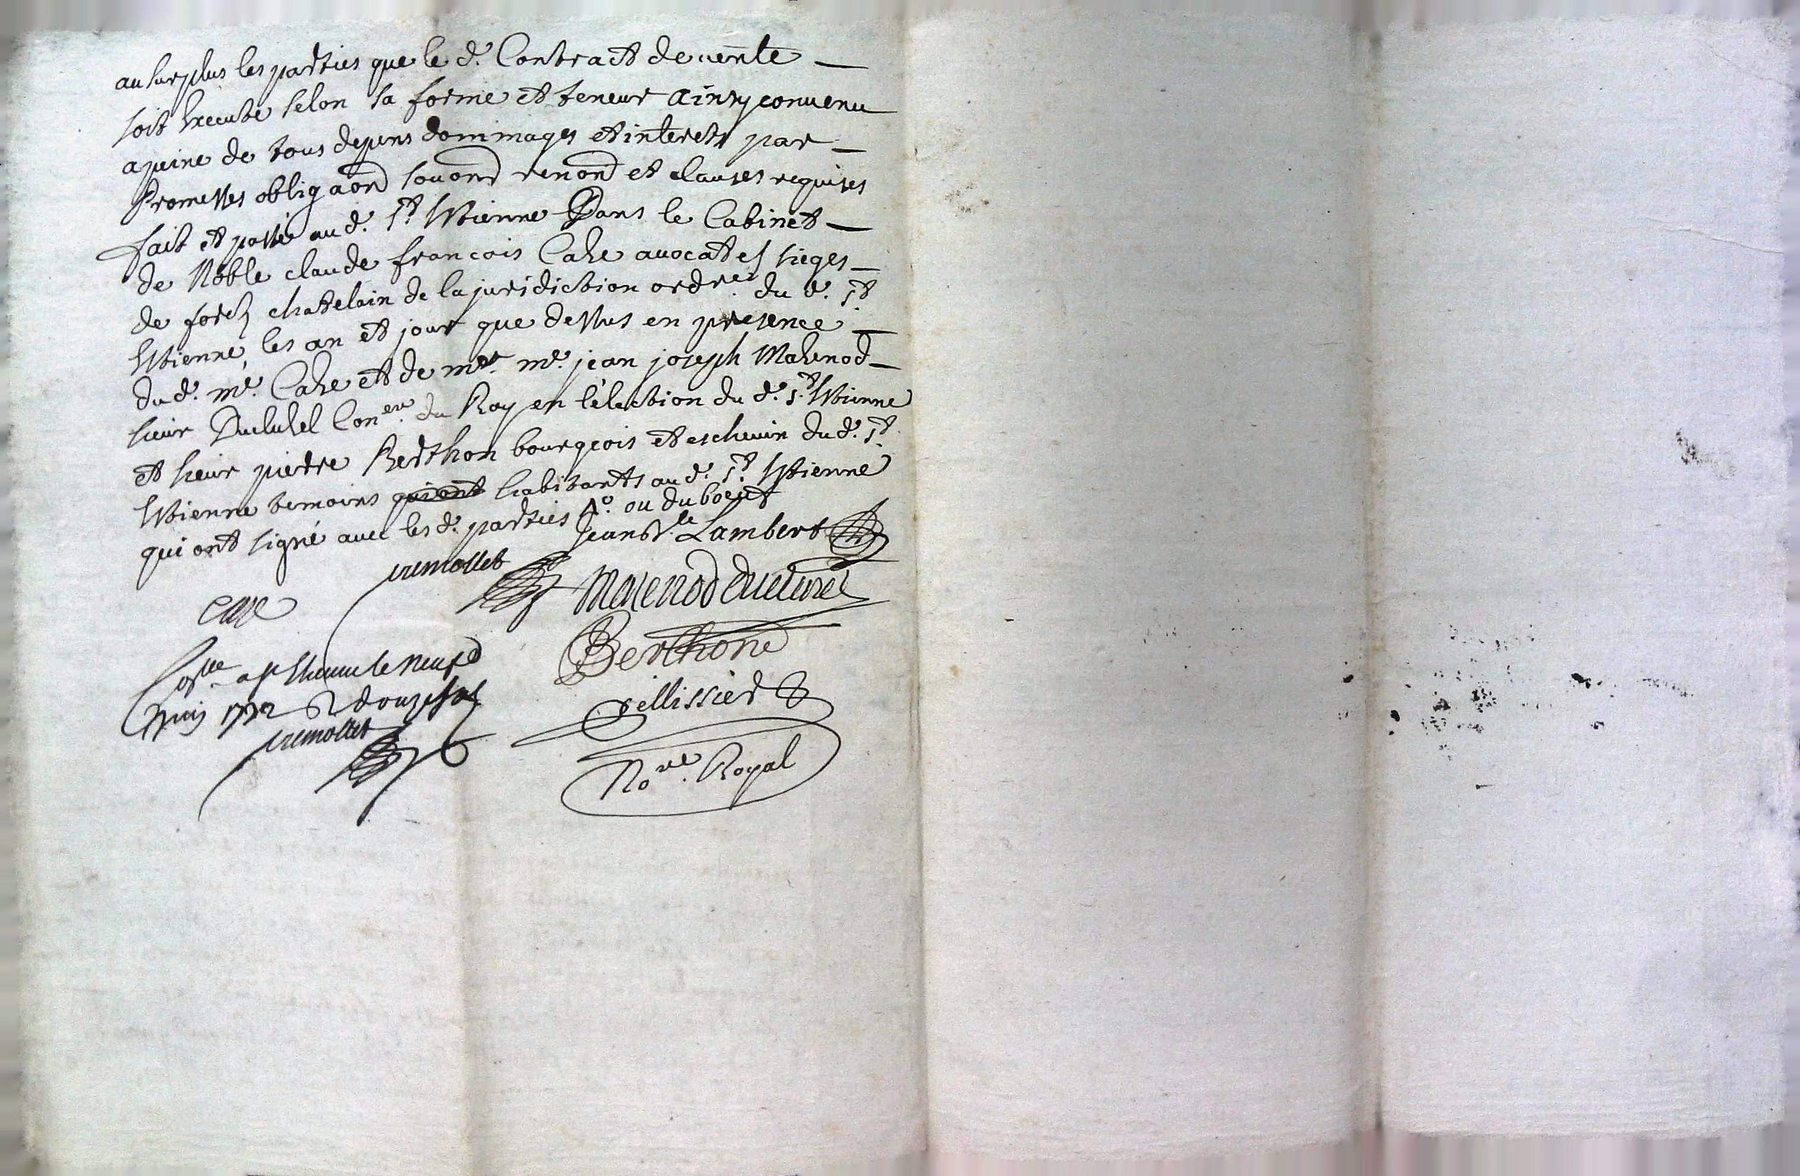 au surplus les parties que le d. Contract de vente
soit Execute selon sa forme et teneur ainsy convenu
a peine de tous depens dommages et interets par
Promesses obligaons souons renons et clauses requises
fait et passé au d. St Estienne Dans le Cabinet
de Noble claude francois Caze avocat es sieges
de forez chatelain de la juridiction ordre. du d. St
Estienne, les an et jour que dessus en presence
du d. me. Caze et de mre. me. jean joseph Mazenod
sieur Duclusel Coner. du Roy en l'élection du d. St Estienne
et sieur pierre Berthon bourgeois et eschevin du d. St
Estienne temoins habitants au d. St Estienne
qui ont signé avec les d. parties ou duboeuf
Jean Lambert
Mazenod
caze
Berthon
a St Etienne le neuf
juin douze sols
Pellissier
Nore. Royal